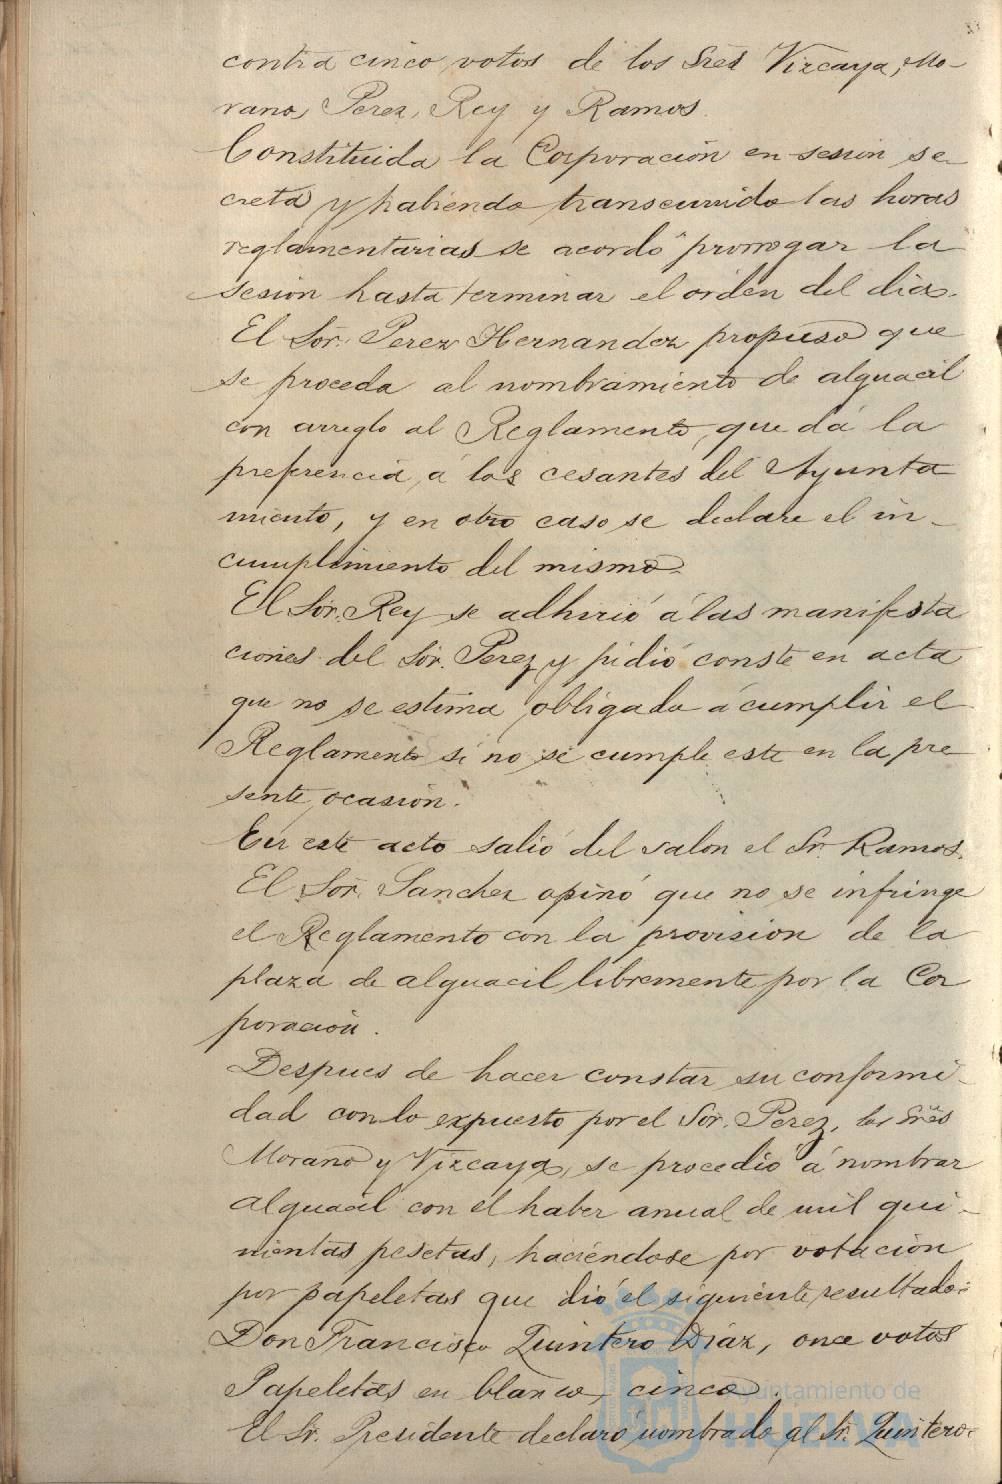 contra cinco votos de los Sres Vizcaya, Mo-
rano, Perez, Rey y Ramos.
Constituida la Corporación en sesion se-
creta y habiendo transcurrido las horas
reglamentarias se acordó prorrogar la
sesion hasta terminar el orden del dia.
El Sor. Perez Hernandez propuso que
se proceda al nombramiento de alguacil
con arreglo al Reglamento, que dá la
preferencia á los cesantes del Ayunta
miento, y en otro caso se declare el in-
cumplimiento del mismo.
El Sor. Rey se adhirió á las manifesta
ciones del Sor. Perez y pidió conste en acta
que no se estima obligado á cumplir el
Reglamento si no se cumple este en la pre
sente ocasión.
En este acto salió del salon el Sr. Ramos.
El Sor. Sanchez opinó que no se infringe
el Reglamento con la provision de la
plaza de alguacil libremente por la Cor
poración.
Despues de hacer constar su conformi-
dad con lo expuesto por el Sor. Perez, los Sres
Morano y Vizcaya, se procedió á nombrar
alguacil con el haber anual de mil qui-
nientas pesetas, haciéndose por votacion
por papeletas que dió el siguiente resultado:
Don Francisco Quintero Diaz, once votos
Papeletas en blanco, cinco.
El Sr. Presidente declaró nombrado al Sr. Quintero.
Ayuntamiento de
HUELVA